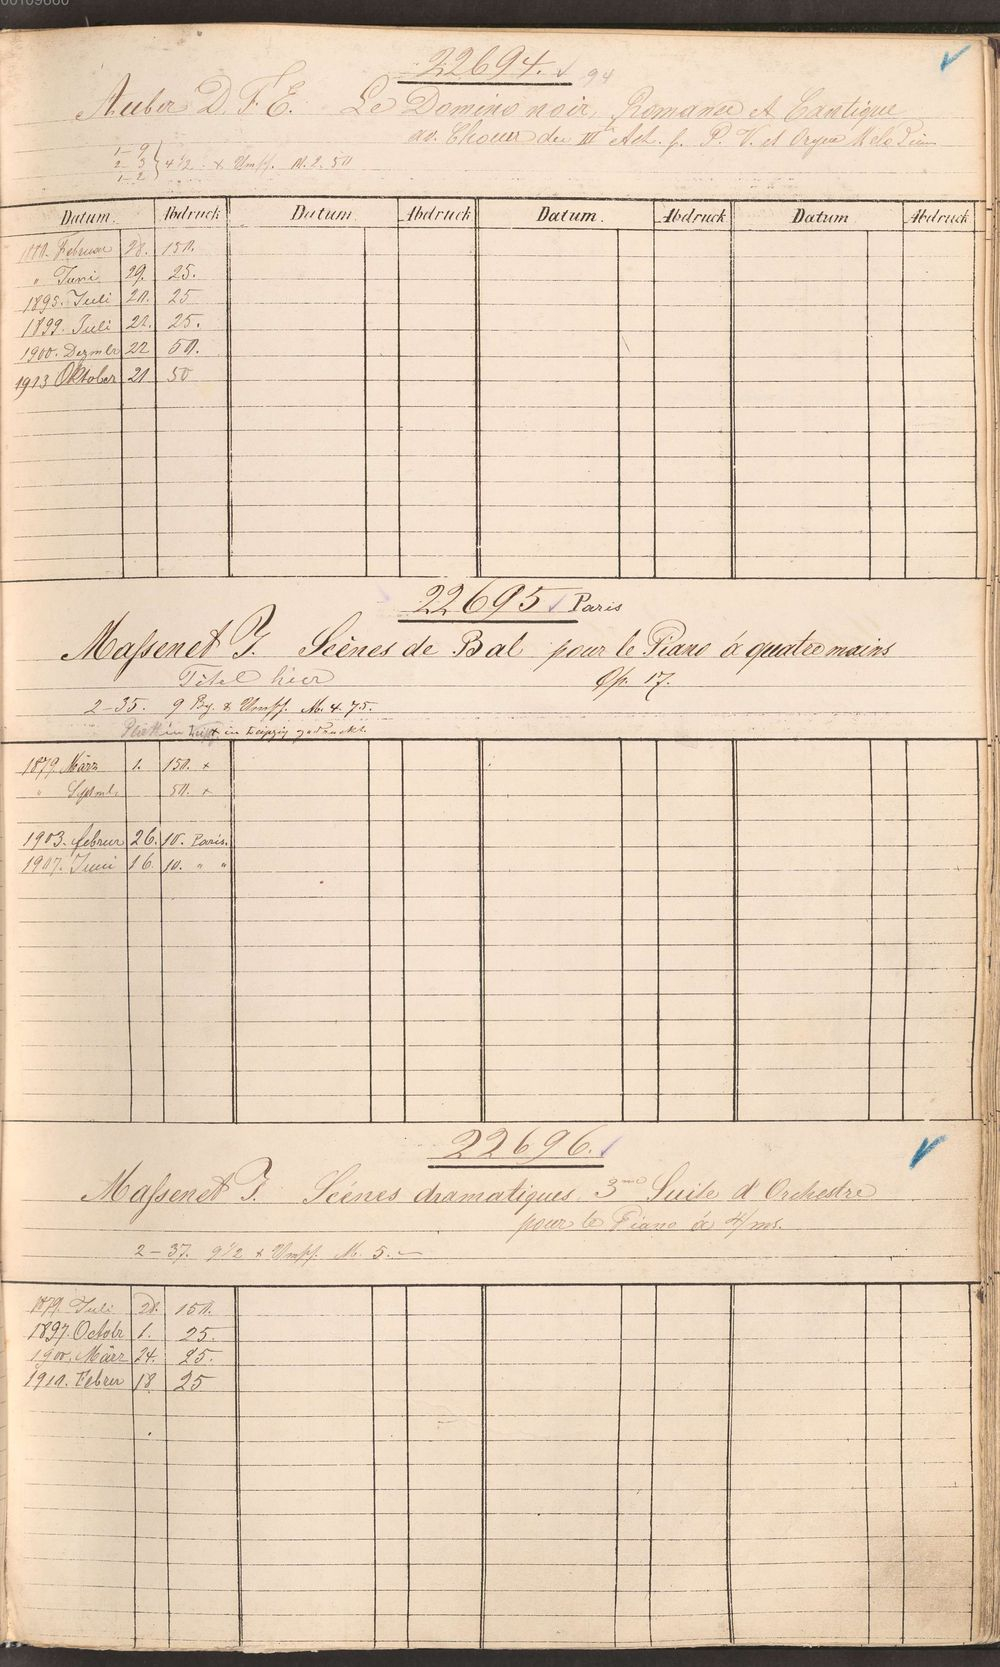 22694. 94
Auber D. F. E. Le Domino noir, Romance et Cantique
av. Choeur du III Act. p. P. V. et Orgue Melodium
1–9
2–3 } 4 1/2 x Umschl. M. 2. 50
1–2
Datum. Abdruck Datum Abdruck Datum. Abdruck Datum Abdruck
1880. Februar 28. 150.
" Juni 29. 25.
1895. Juli 20. 25
1899. Juli 22. 25.
1900. Dezmbr 22 50.
1913 Oktober 21 50
22695 Paris
Massenet J. Scènes de Bal pour le Piano à quatre mains
Titel hier Op. 17.
2–35. 9 Bg. & Umschl. M. 4. 75.
x in Leipzig gedruckt.
1879. März 1. 150. x
" Septmb. 50. x
1903. Februar 26. 10. Paris.
1907. Juni 16. 10. " "
22696.
Massenet J. Scènes dramatiques. 3me Suite d'Orchestre
pour le Piano à 4/ms.
2–37. 9 1/2 x Umschl. M. 5. –
1879. Juli 28. 150.
1897. Octobr 1. 25.
1900. März 24. 25.
1910. Febrer 18. 25